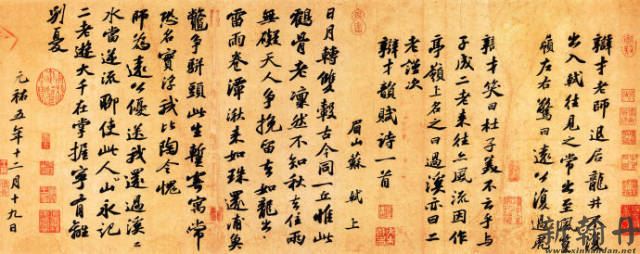 辯才老師退居龍井不復
出入軾往見之常出至風篁
嶺左右驚曰遠公復過虎
辯才笑曰杜子美不云乎與
子成二老來往亦風流因作
亭嶺上名之曰過溪亦曰二
老謹次
辯才韻賦詩一首
眉山蘇軾上
日月轉雙轂古今同一丘惟此
鶴骨老凜然不知秋去住兩
無礙天人爭挽留去如龍出
雷雨卷潭湫來如珠還浦魚
鱉爭駢頭此生暫寄寓常
恐名實浮我比陶令愧
師為遠公優送我還過溪溪
水當逆流聊使此人山永記
二老遊大千在掌握寧有離
別憂
元祐五年十二月十九日
新翰丹
www.xinhandan.net